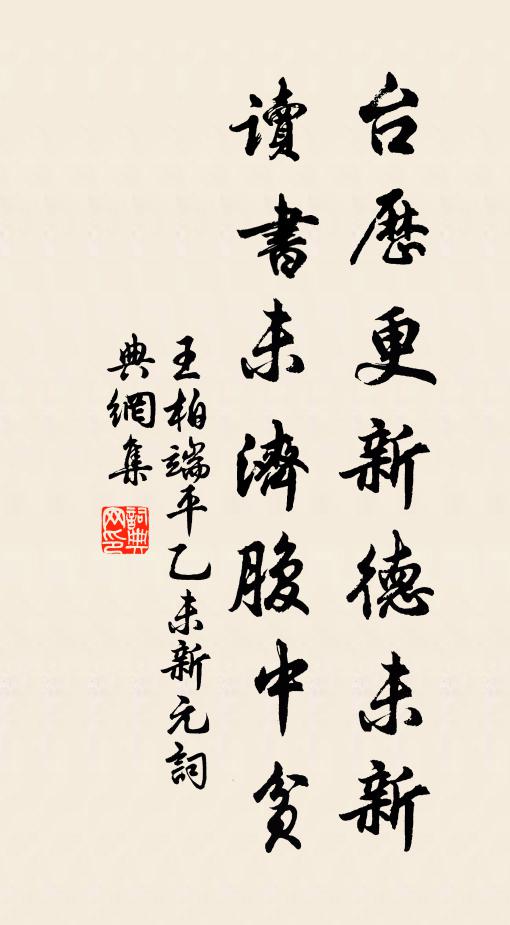 台歷更新德未新
讀書未濟腹中貧
王柏端平乙未新元詞
典網集
詞典
网印